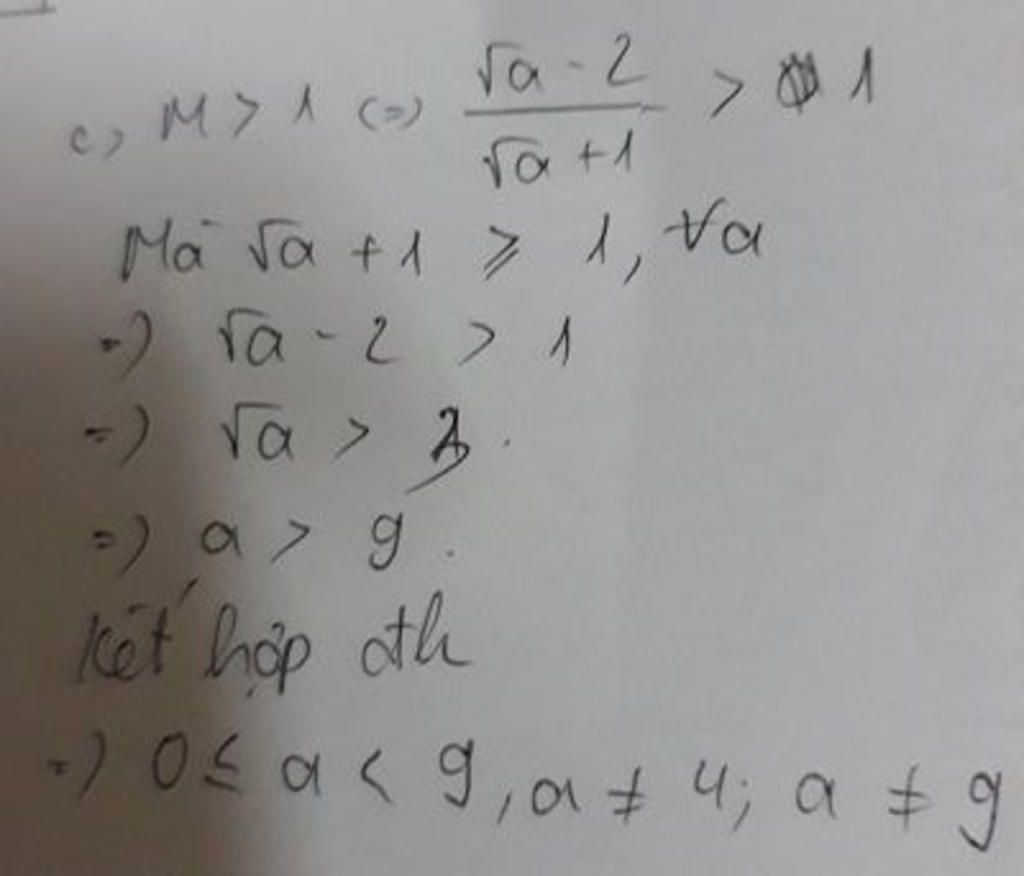 c, M > 1 (=) (√a - 2)/(√a + 1) > 1
Mà √a + 1 ≥ 1, ∀a
=) √a - 2 > 1
=) √a > 3.
=) a > 9.
Kết hợp đk
=) 0 ≤ a < 9, a ≠ 4; a ≠ 9